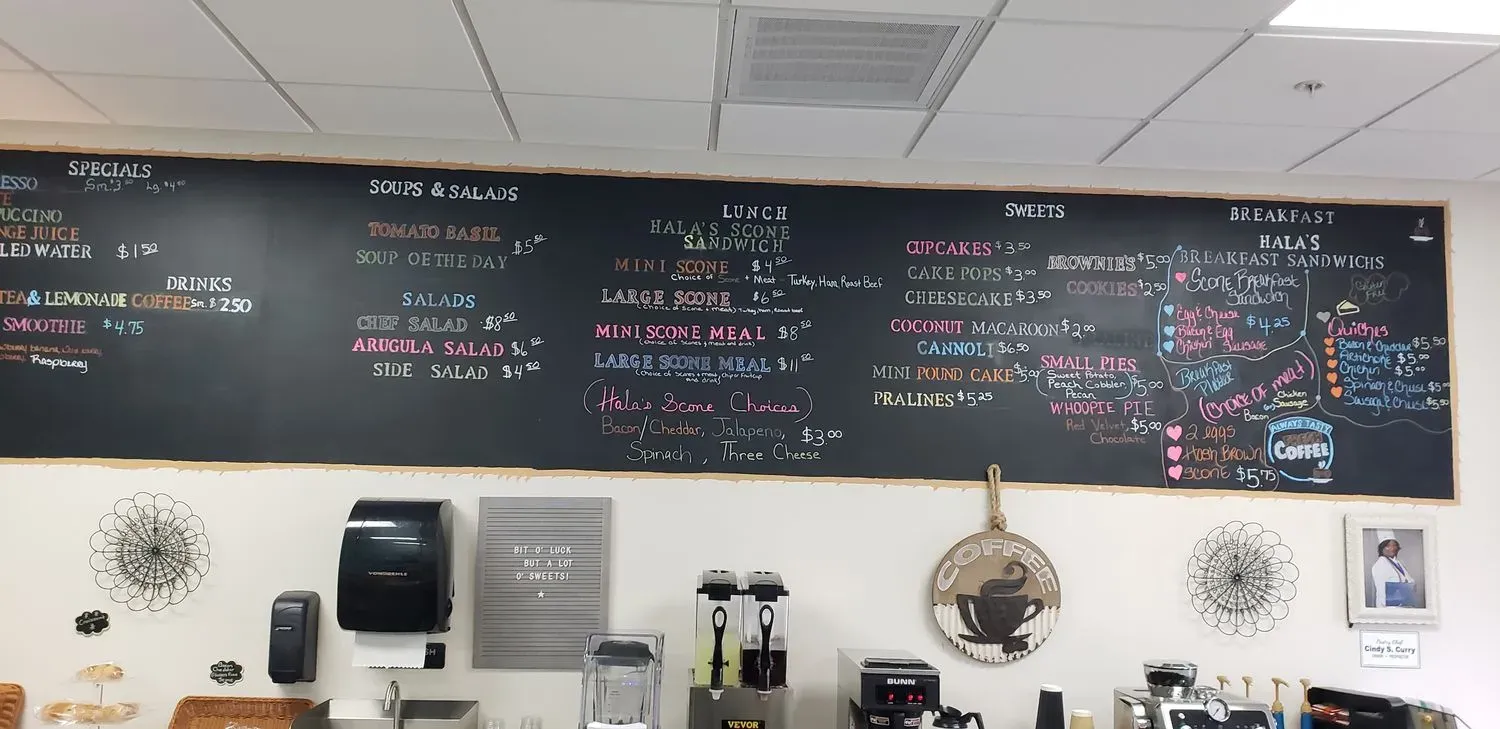 SPECIALS
ESSO Sm. $3.00 Lg. $4.00
UCCINO
NGE JUICE
LED WATER $1.50
DRINKS
TEA & LEMONADE COFFEE Sm. $2.50
SMOOTHIE $4.75
Raspberry
SOUPS & SALADS
TOMATO BASIL
$5.50
SOUP OF THE DAY
SALADS
CHEF SALAD $8.50
ARUGULA SALAD $6.50
SIDE SALAD $4.50
LUNCH
HALA'S SCONE
SANDWICH
MINI SCONE $4.50
Choice of Scone + Meat - Turkey, Ham, Roast Beef
LARGE SCONE $6.50
(Choice of Scone + Meats) Turkey, Ham, Roast Beef
MINI SCONE MEAL $8.50
(choice of scones + meat and drink)
LARGE SCONE MEAL $11.50
(choice of scones + meat, chips or fruit cup
and drink)
(Hala's Scone Choices)
Bacon/Cheddar, Jalapeno, $3.00
Spinach, Three Cheese
SWEETS
CUPCAKES $3.50
CAKE POPS $3.00
CHEESECAKE $3.50
BROWNIE'S $5.00
COOKIES $2.50
COCONUT MACAROON $2.00
CANNOLI $6.50
MINI POUND CAKE $5.00
PRALINES $5.25
SMALL PIES
Sweet Potato,
Peach Cobbler, $5.00
Pecan
WHOOPIE PIE
Red Velvet, $5.00
Chocolate
BREAKFAST
HALA'S
BREAKFAST SANDWICHS
Scone Breakfast
Sandwich
Egg & Cheese
Bacon & Egg $4.25
Chicken Sausage
Breakfast
(choice of meat)
Bacon (or) Chicken Sausage
2 eggs
Hash Brown
Scone $5.75
Gluten
Free
Quiches
Bacon & Cheddar $5.50
Artichoke $5.00
Chicken $5.00
Spinach & Chese $5.00
Sausage & Chese $5.50
ALWAYS TASTY
FRESH
COFFEE
BIT O' LUCK
BUT A LOT
O' SWEETS!
COFFEE
VEVOR
BUNN
Pastry Chef
Cindy S. Curry